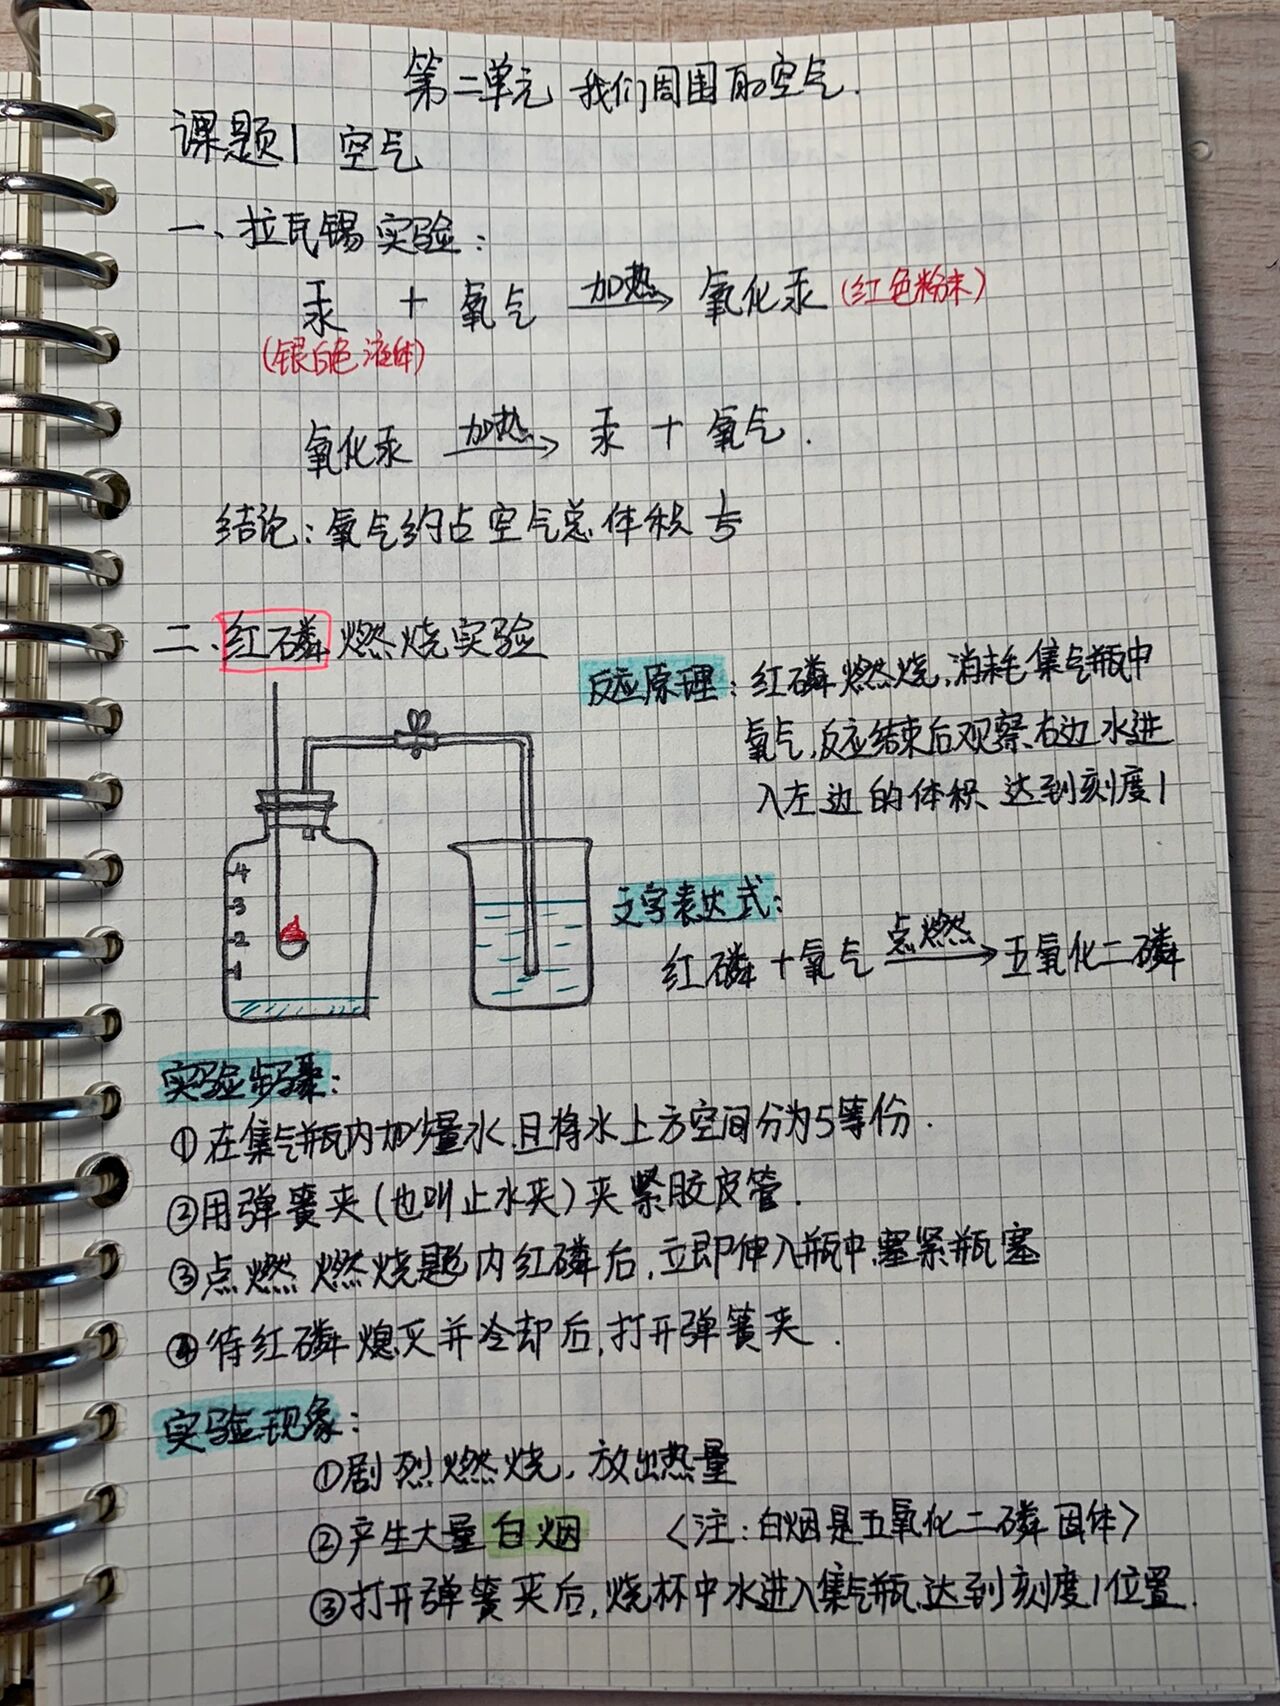 第二单元 我们周围的空气.
课题1 空气
一、拉瓦锡实验:
汞 + 氧气 加热→ 氧化汞 (红色粉末)
(银白色液体)
氧化汞 加热→ 汞 + 氧气.
结论:氧气约占空气总体积 1/5
二、红磷燃烧实验
反应原理:红磷燃烧,消耗集气瓶中
氧气,反应结束后观察右边水进
入左边的体积 达到刻度1
4
3
2
1
文字表达式:
红磷+氧气 点燃→ 五氧化二磷
实验步骤:
①在集气瓶内加少量水,且将水上方空间分为5等份.
②用弹簧夹(也叫止水夹)夹紧胶皮管.
③点燃燃烧匙内红磷后,立即伸入瓶中,塞紧瓶塞
④待红磷熄灭并冷却后,打开弹簧夹.
实验现象:
①剧烈燃烧,放出热量
②产生大量白烟 〈注:白烟是五氧化二磷固体〉
③打开弹簧夹后,烧杯中水进入集气瓶,达到刻度1位置.